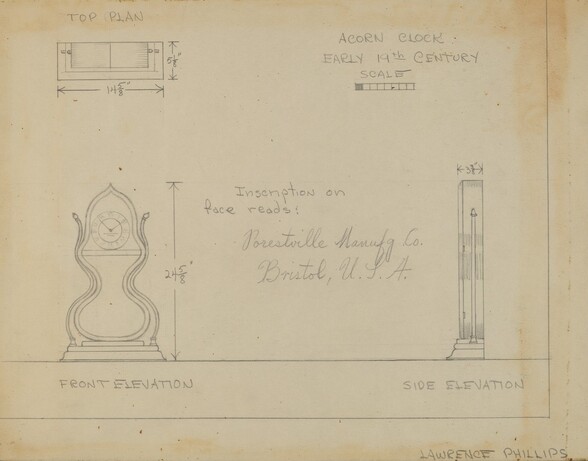 TOP PLAN
ACORN CLOCK
EARLY 19th CENTURY
SCALE
5⅛"
14⅝"
3⅞"
Inscription on
face reads:
Forestville Manufg Co.
Bristol, U.S.A.
24⅝"
FRONT ELEVATION
SIDE ELEVATION
LAWRENCE PHILLIPS